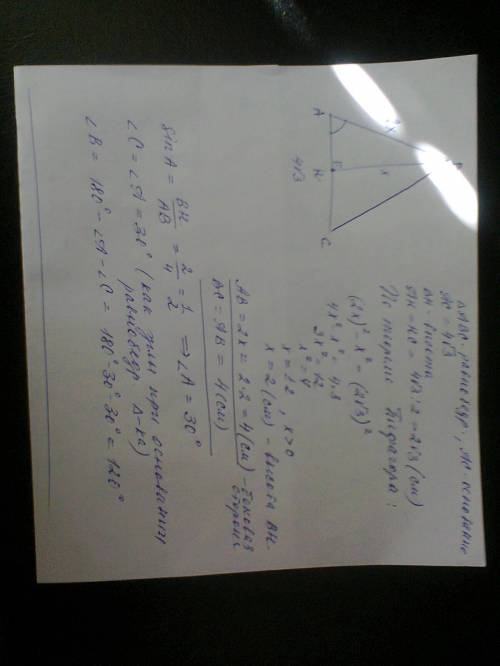 ΔABC - равнобедр., AC - основание
AC = 4√3
BH - высота
AH = HC = 4√3 : 2 = 2√3 (см)
По теореме Пифагора:
(2x)² - x² = (2√3)²
4x² - x² = 4·3
x² = 4
x = ±2, x > 0
x = 2 (см) - высота BH
AB = 2x = 2·2 = 4 (см) - боковая сторона
BC = AB = 4 (см)
sin A = BH/AB = 2/4 = 1/2 ⇒ ∠A = 30°
∠C = ∠A = 30° (как углы при основании
равнобедр Δ-ка)
∠B = 180° - ∠A - ∠C = 180° - 30° - 30° = 120°
A
H
C
2x
x
4√3